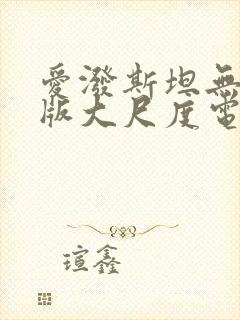 愛潑斯坦無
版大尺度電
瑄鑫